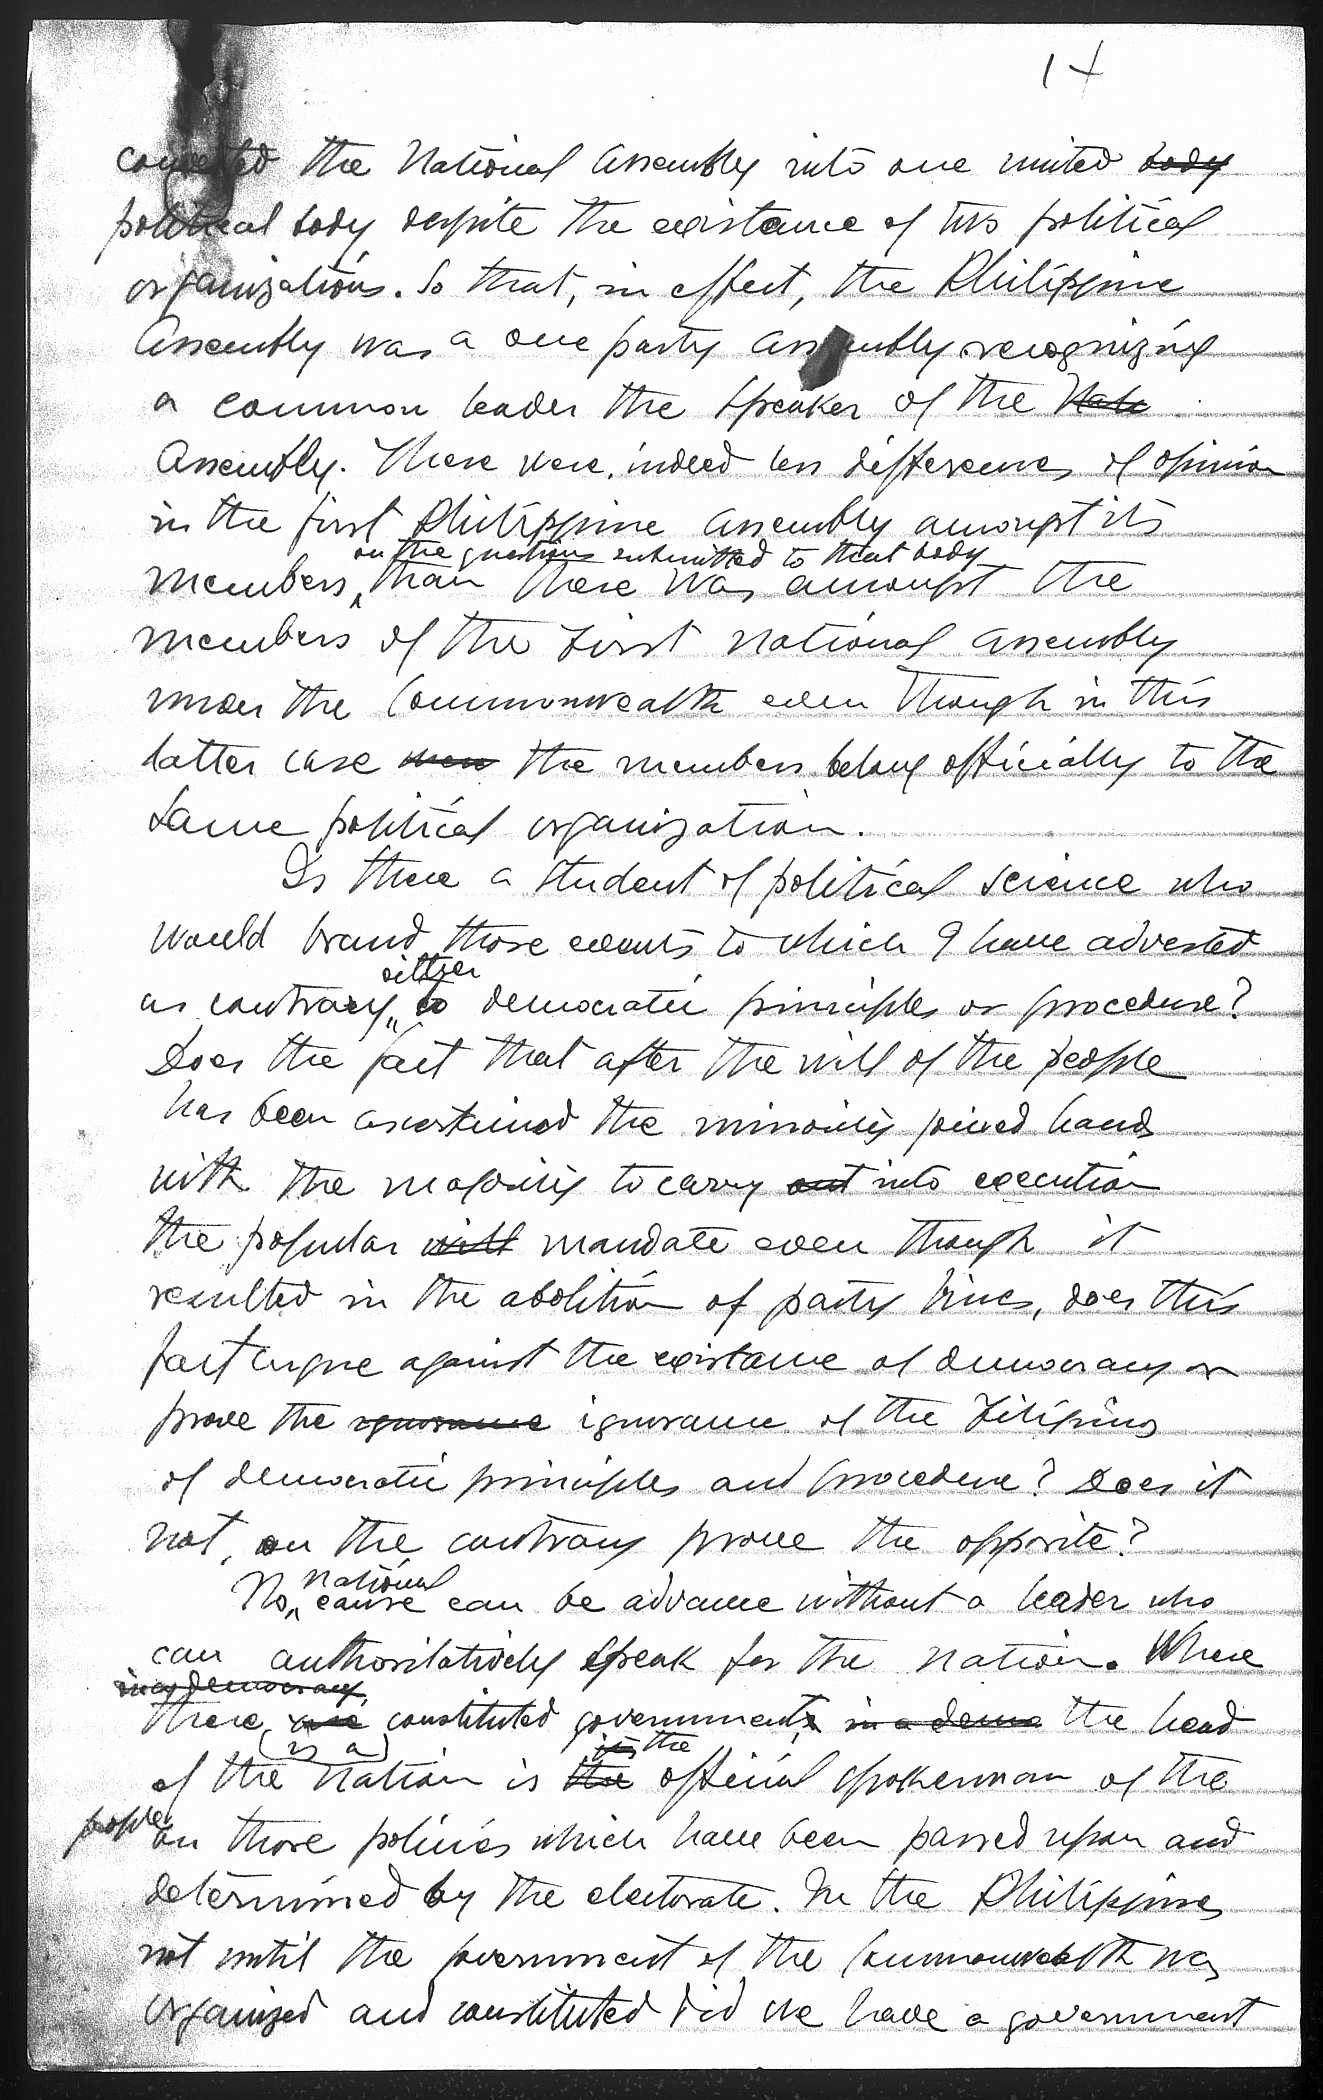 14
converted the National Assembly into one united body
political body despite the existance of two political
organizations. So that, in effect, the Philippine
Assembly was a one party assembly recognizing
a common leader the Speaker of the Nate
Assembly. There were, indeed less differences of opinion
in the first Philippine Assembly amongst its
on the questions submitted to that body
members, than there was amongst the
members of the First National Assembly
under the Commonwealth even though in this
latter case were the members belong officially to the
same political organization.
Is there a student of political science who
would brand those events to which I have adverted
either
as contrary to democratic principles or procedure?
Does the fact that after the will of the people
has been ascertained the minority joined hands
with the majority to carry out into execution
the popular will mandate even though it
resulted in the abolition of party lines, does this
fact argue against the existance of democracy or
prove the ignorance ignorance of the Filipinos
of democratic principles and procedure? Does it
not, on the contrary prove the opposite?
national
No, cause can be advance without a leader who
can authoritatively speak for the nation. Where
in a democracy,
there are constituted governments in a demo the head
(is a) its the
of the nation is the official spokesman of the
people
on those policies which have been passed upon and
determined by the electorate. In the Philippines
not until the government of the Commonwealth was
organized and constituted did we have a government